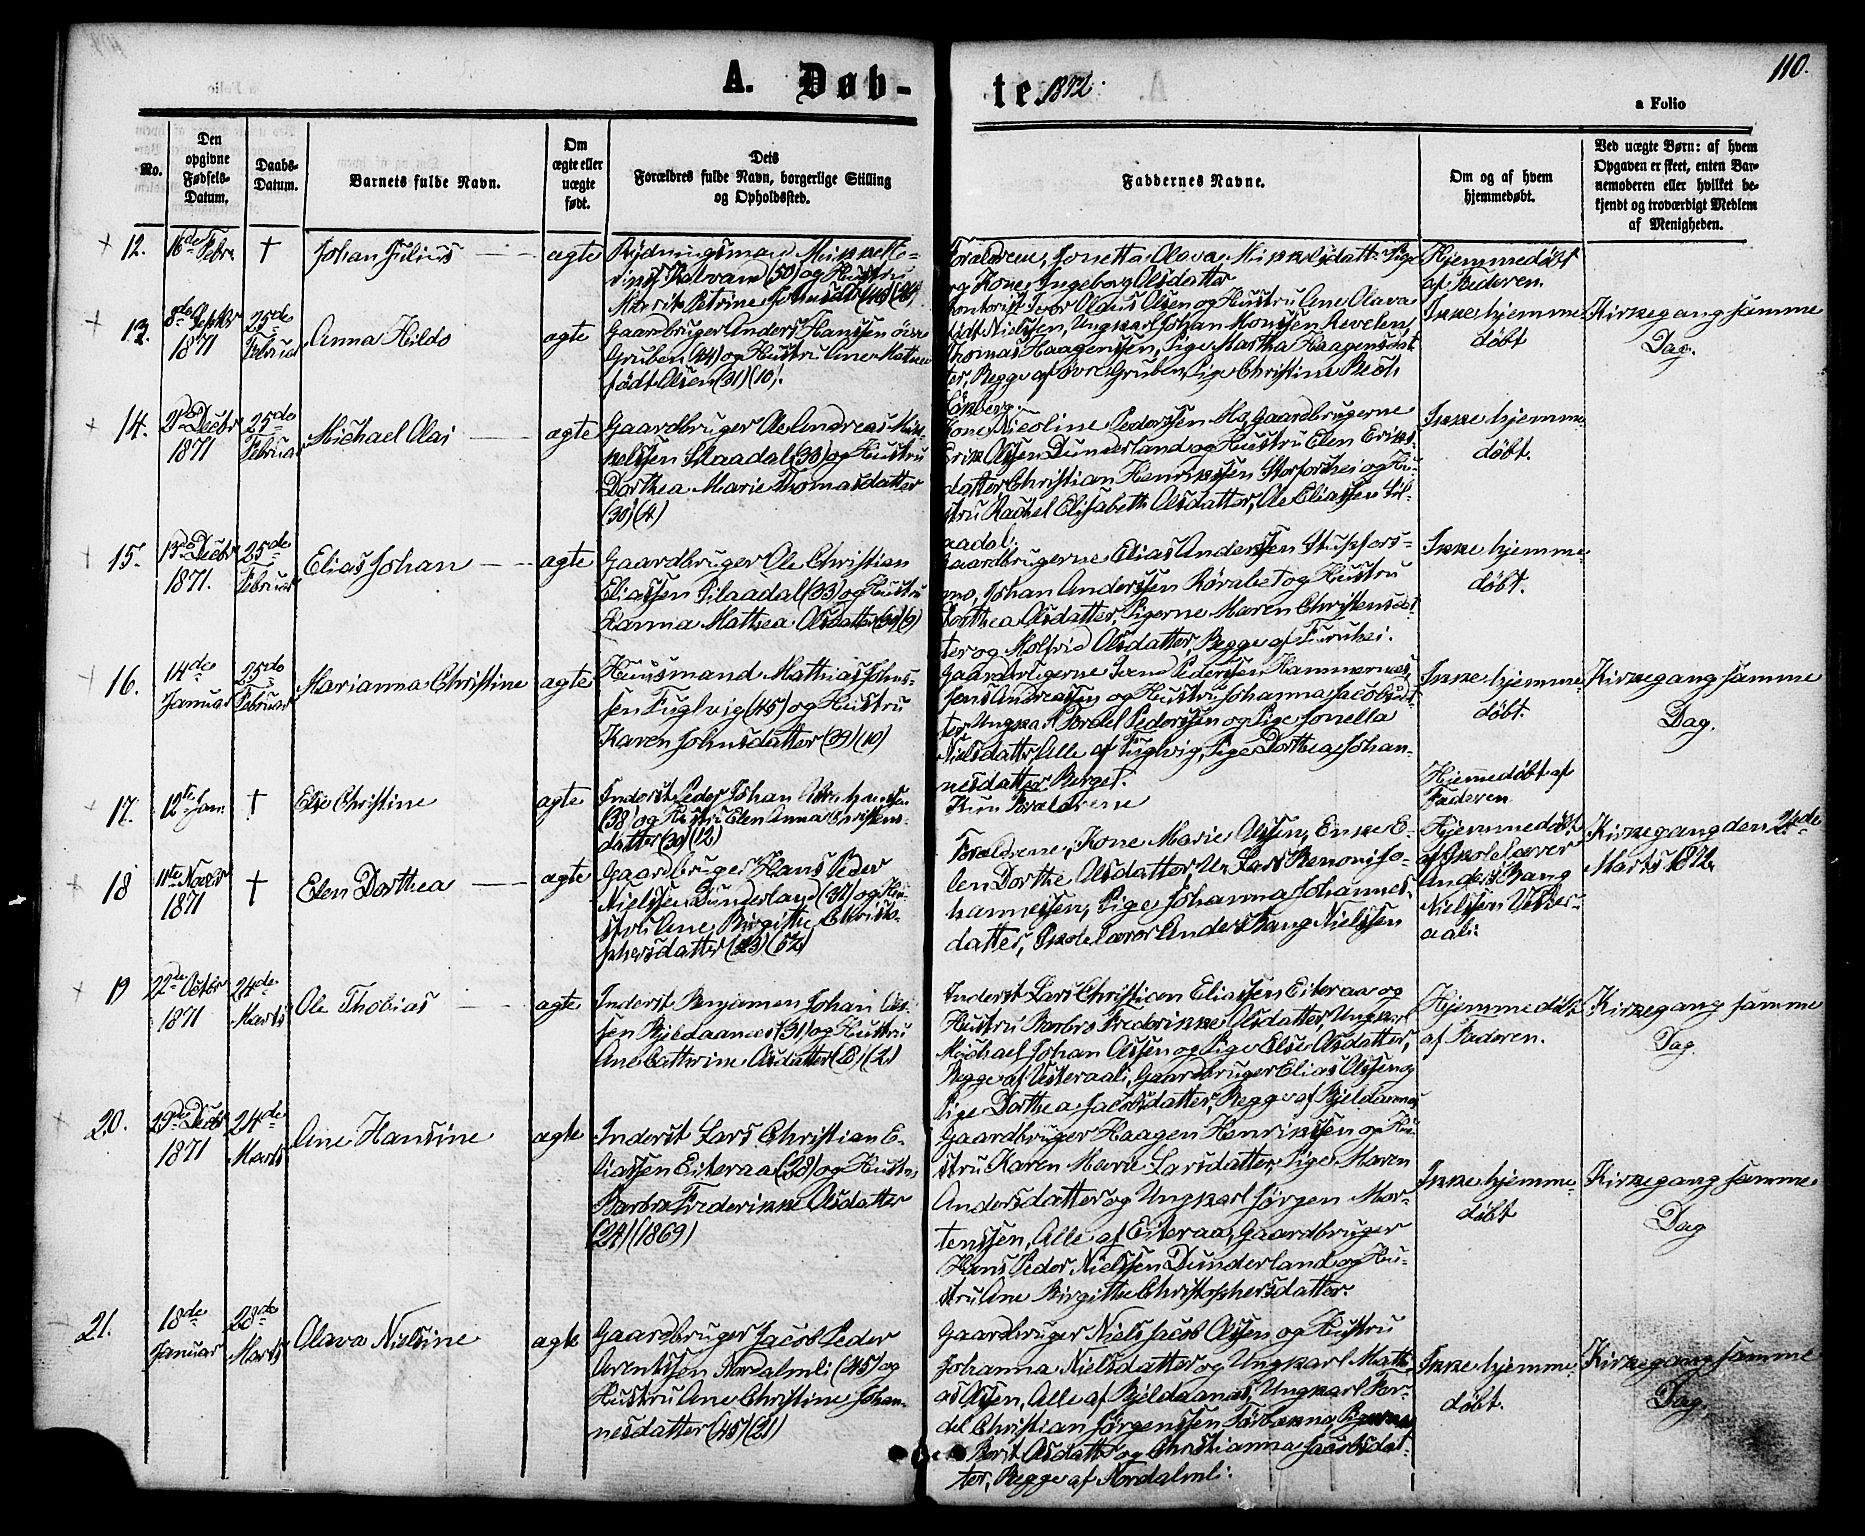 110.
A. Døb-
te. 1872.
a Folio
No.
Den
opgivne
Fødsels-
Datum.
Daabs-
Datum.
Barnets fulde Navn.
Om
ægte eller
uægte
født.
Dets
Forældres fulde Navn, borgerlige Stilling
og Opholdssted.
Faddernes Navne.
Om og af hvem
hjemmedøbt.
Ved uægte Børn: af hvem
Opgaven er skeet, enten Bar-
nemoderen eller hvilket be-
kjendt og troværdigt Medlem
af Menigheden.
12.
16de Febr.
†
Johan Julius
ægte
Rydningsmand
(50) og Hustru
Forældrene, Jonetta Olava Pige
og Kone Ingeborg Olsdatter
Hjemmedøbt
af Faderen.
13.
8de Septbr
1871
25de
Februar
Anna Hilda
ægte
Gaardbruger Anders Hanssen øvre
Gruben (34) og Hustru Ane
født Olsen (31) (10).
Olaus Olsen og Hustru Ane Olava
født Nielssen, Ungkarl Johan Monssen Revelen,
Thomas Haagenssen, Pige Martha Haagensdat-
ter, Begge af øvre Gruben, Pige Christine
Ikke hjemme
døbt
Kirkegang samme
Dag.
14.
Decbr
1871
25de
Februar
Michael Olai
ægte
Gaardbruger Ole Andreas Mik-
kelssen (30) og Hustru
Dorthea Marie Thomasdatter
(30) (4)
Kone Nicoline Pederssen Gaardbrugerne
Erik Olssen Dunderland og Hustru Elen Eriks-
datter Christian Henrikssen Storforshei og Hu-
stru Rachel Elisabeth Olsdatter, Ole Eliassen
Ikke hjemme
døbt.
15.
13de Decbr
1871.
25de
Februar
Elias Johan
ægte
Gaardbruger Ole Christian
Eliassen (33) og Hustru
Mathea Olsdatter (9)
Gaardbrugerne Elias Anderssen Stupfors-
mo, Johan Anderssen og Hustru
Dorthea Olsdatter, Pigerne Maren Christensdat-
ter og Olsdatter, Begge af Furuhei.
Ikke hjemme
døbt.
16.
14de
Januar
25de
Februar
Marianna Christine
ægte
Huusmand Mathias Johns-
sen Fuglvig (45) og Hustru
Karen Johnsdatter (39) (10)
Gaardbrugerne Pederssen Hammernes,
Jens Andreassen og Hustru Johanna Jacobsdat-
ter, Ungkarl Tordel Pederssen og Pige Jonella
Nielsdatter, Alle af Fuglvig, Pige Dorthea Johan-
nesdatter Berget.
Ikke hjemme-
døbt.
Kirkegang samme
Dag.
17.
12te Jan.
†
Else Christine
ægte
Inderst Peder Johan
(38) og Hustru Elen Anna Christens-
datter (30) (12)
Kun Forældrene
Hjemmedøbt af
Faderen
18
11te Novbr
1871
†
Elen Dorthea
ægte
Gaardbruger Hans Peder
Nielssen Dunderland (39) og Hu-
stru Ane Birgitthe Christo-
phersdatter (43) (52)
Forældrene, Kone Marie Olssen, Enke E-
len Dorthe Olsdatter, U. Lars Benoni Jo-
hannessen, Pige Johanna Johannes-
datter, Skolelærer Anders Bang Nielssen
Hjemmedøbt
af Skolelærer
Anders Bang
Nielssen Vester-
aali.
Kirkegang den 24de
Marts 1872.
19
22de Octbr
1871
24de
Marts
Ole Thobias
ægte
Inderst Benjamin Johan Ols-
sen Bjeldaanæs (31) og Hustru
Ane Cathrine Olsdatter (2)
Inderst Lars Christian Eliassen Eiteraa og
Hustru Barbro Frederikke Olsdatter, Ungkarl
Michael Johan Olssen og Pige Else Olsdatter,
Begge af Vesteraali, Gaardbruger Elias Olssen og
Pige Dorthea Jacobsdatter, Begge af Bjeldaanæs
Hjemmedøbt
af Faderen.
Kirkegang samme
Dag.
20.
Decbr
1871
24de
Marts
Ane Hansine
ægte
Inderst Lars Christian E-
liassen Eiteraa (28) og Hustru
Barbro Frederikke Olsdatter
(24) (1869)
Gaardbruger Haagen Henrikssen og Hu-
stru Karen Marie Larsdatter, Pige Maren
Andersdatter og Ungkarl Jørgen Mor-
tenssen, Alle af Eiteraa, Gaardbruger
Hans Peder Nielssen Dunderland og Hu-
stru Ane Birgitthe Christophersdatter.
Ikke hjemme-
døbt
Kirkegang samme
Dag
21.
18de
Januar
28de
Marts
Olava Nielsine
ægte
Gaardbruger Jacob Peder
Arentssen Nordalmli (45) og
Hustru Ane Christine Johan-
nesdatter (45) (21)
Gaardbruger Niels Jacob Olssen og Hustru
Johanna Nielsdatter og Ungkarl Mathi-
as Olssen, Alle af Bjeldaanæs, Ungkarl Tor-
del Christian Jørgenssen
Berit Olsdatter og Christianna Jacobsdat-
ter, Begge af Nordalmli.
Ikke hjemme-
døbt.
Kirkegang samme
Dag.